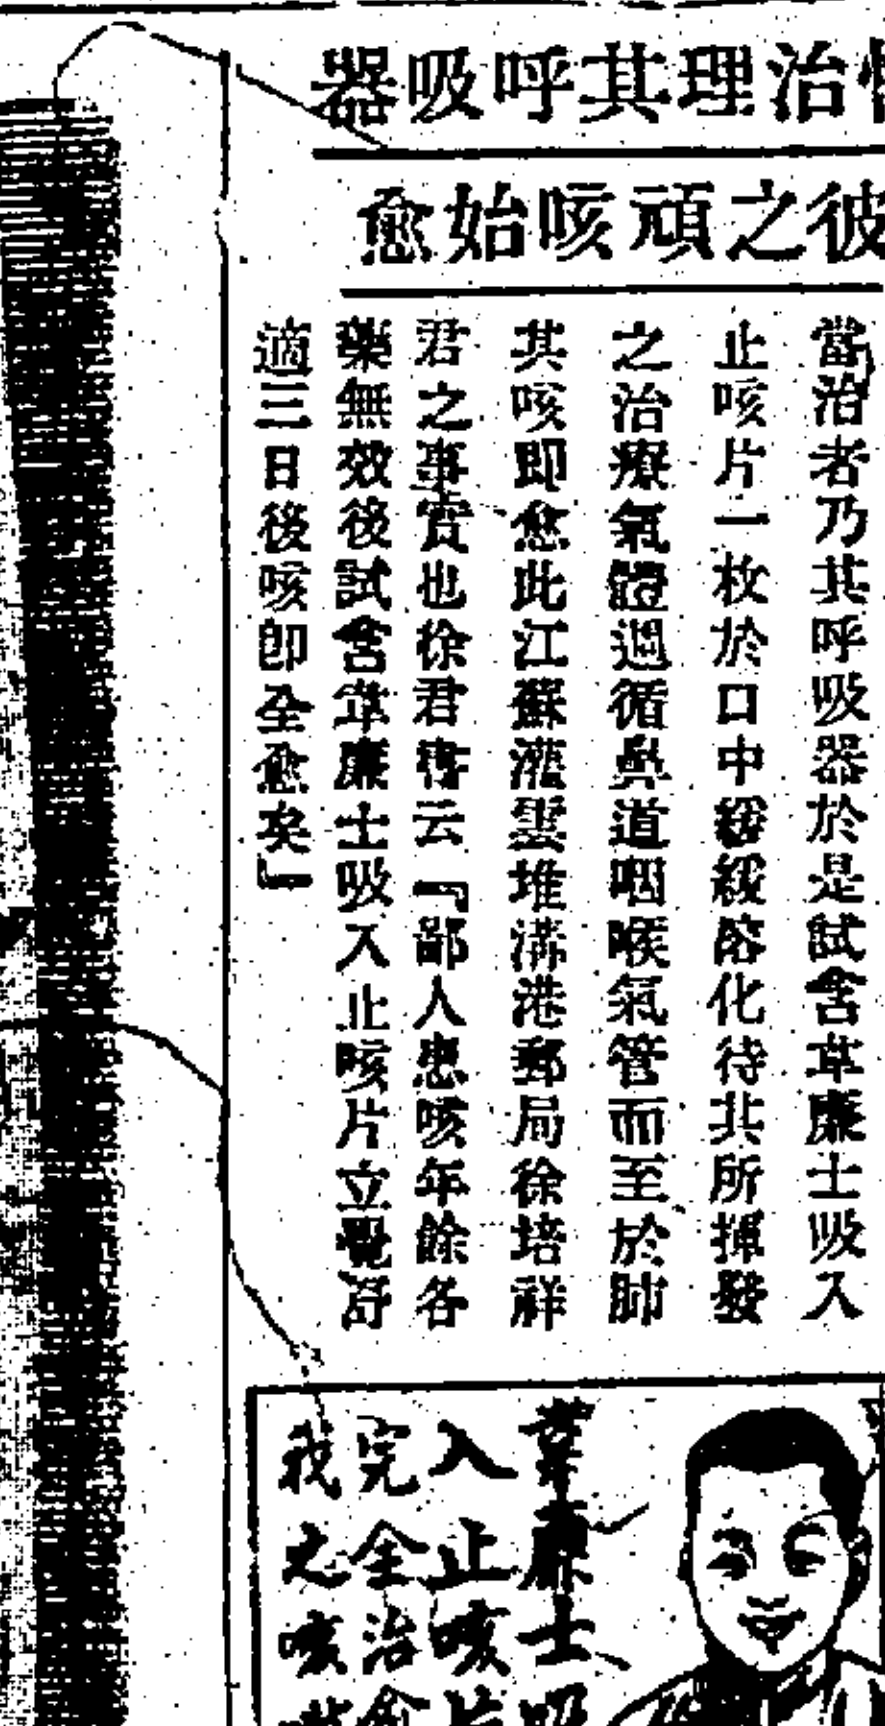 治理其呼吸器
彼之頑咳始愈
當治者乃其呼吸器於是試含韋廉士吸入
止咳片一枚於口中緩緩溶化待其所揮發
之治療氣體週循鼻道咽喉氣管而至於肺
其咳即愈此江蘇灌雲堆溝港郵局徐培祥
君之事實也徐君書云『鄙人患咳年餘各
藥無效後試含韋廉士吸入止咳片立覺舒
適三日後咳即全愈矣』
韋廉士吸
入止咳片
完全治愈
我之咳嗽